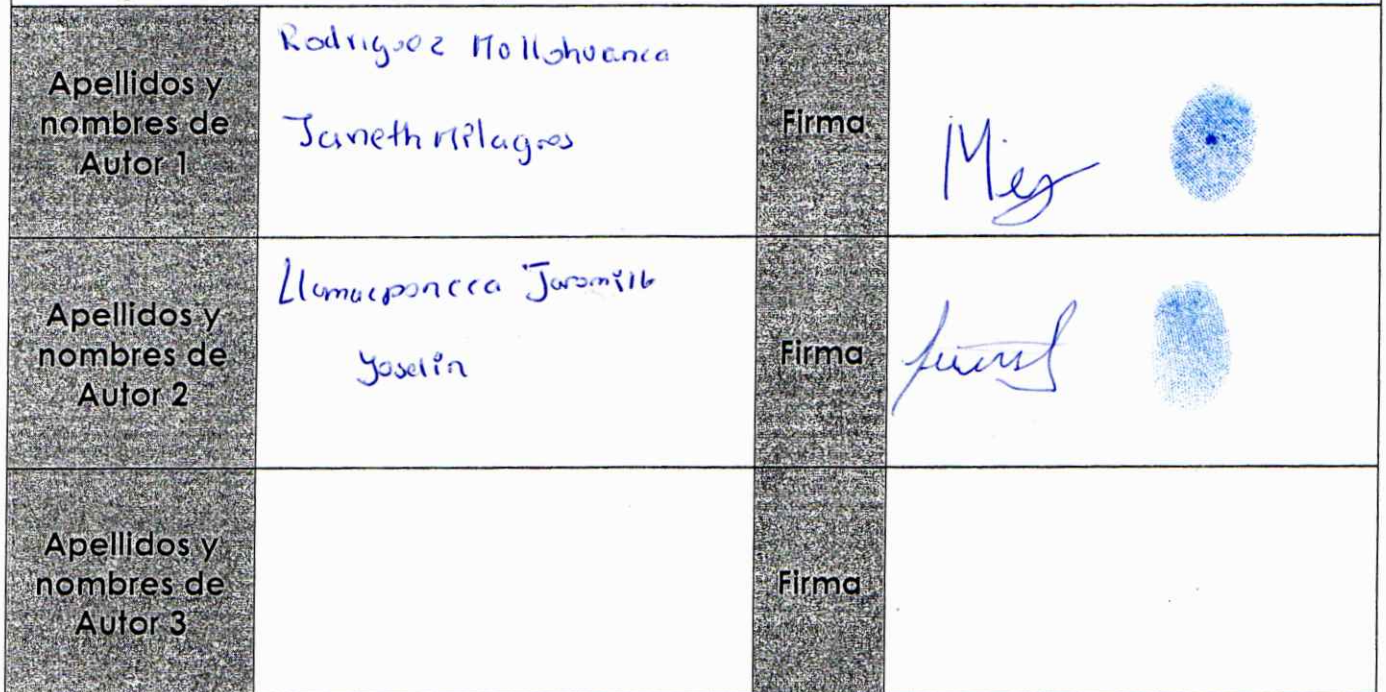 Apellidos y
nombres de
Autor 1
Rodriguez Mollohuanca
Janeth Milagros
Firma
Apellidos y
nombres de
Autor 2
Jaramillo
Yoselin
Firma
Apellidos y
nombres de
Autor 3
Firma